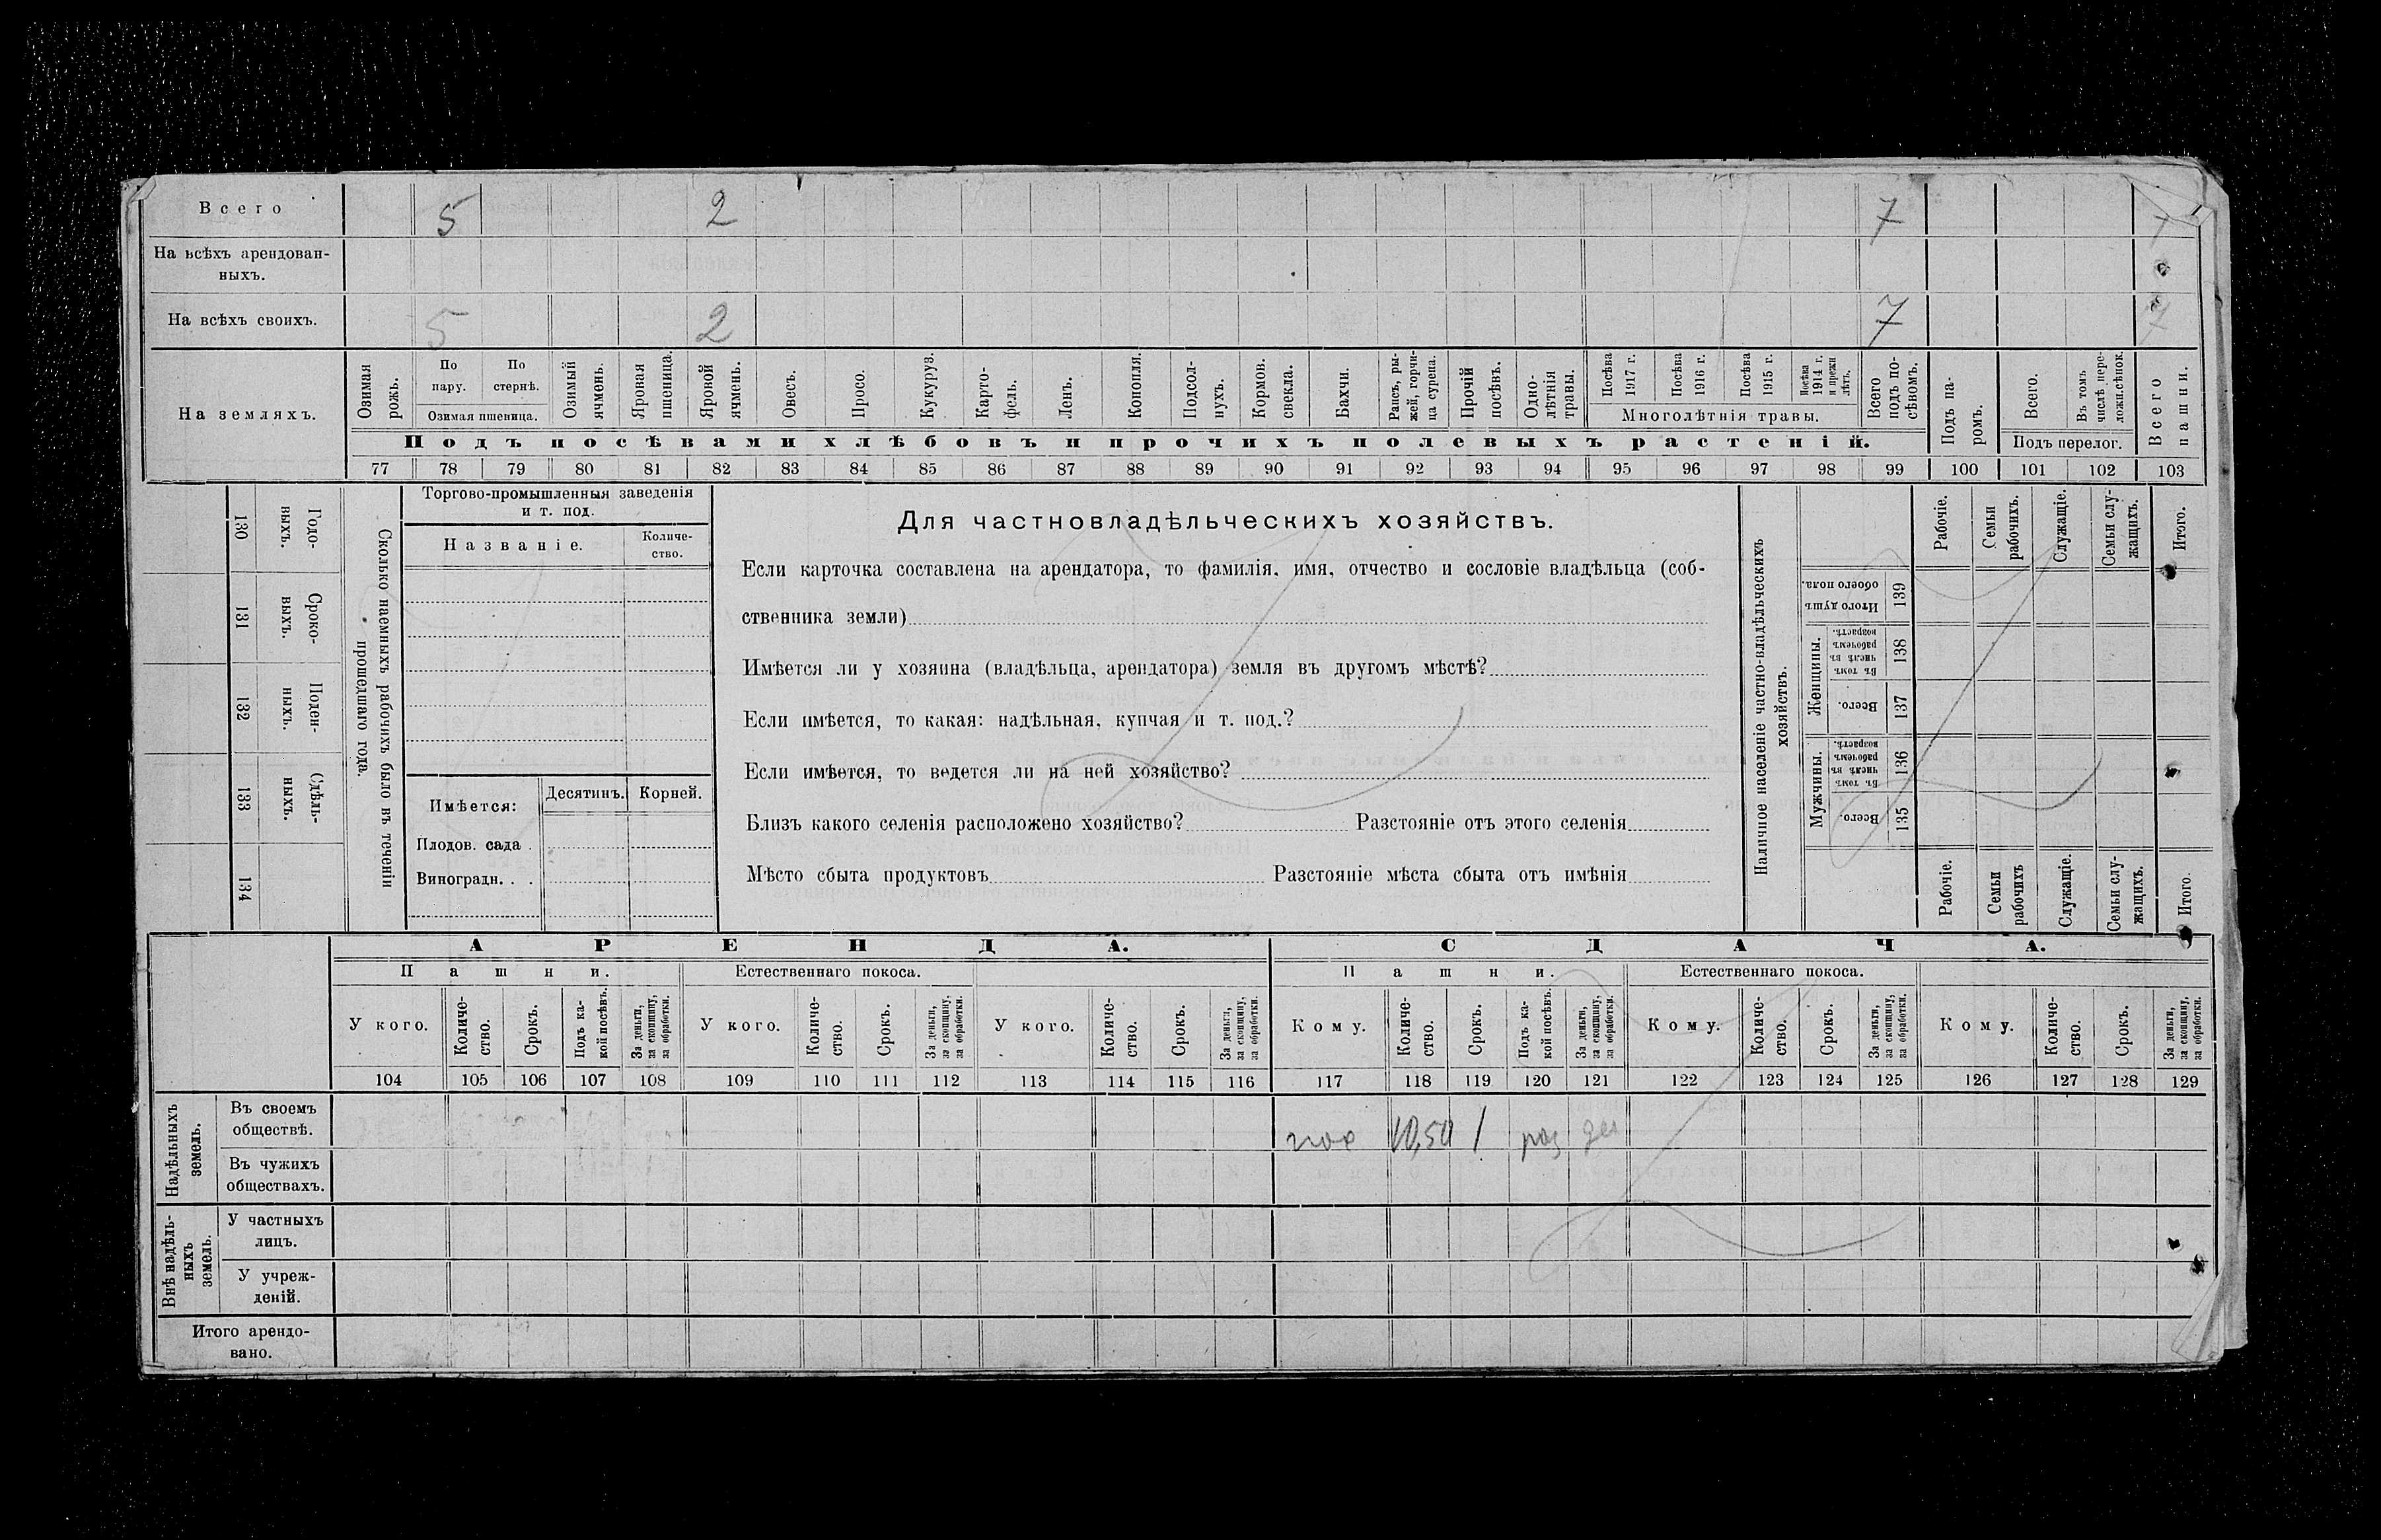 Всего 5 2 7 7
На всѣхъ арендован-
ныхъ.
На всѣхъ своихъ. 5 2 7 7
На земляхъ.
Озимая рожь.
По пару.
По стернѣ.
Озимая пшеница.
Озимый ячмень.
Яровая пшеница.
Яровой ячмень.
Овесъ.
Просо.
Кукуруз.
Карто-
фель.
Ленъ.
Конопля.
Подсол-
нухъ.
Кормов. свекла.
Бахчи.
Рапсъ, ры-
жей, горчи-
ца сурепа.
Прочій посѣвъ.
Одно-
лѣтнія травы.
Посѣва 1917 г.
Посѣва 1916 г.
Посѣва 1915 г.
Посѣва 1914 г. и прежн лѣтъ.
Многолѣтнія травы.
Всего подъ по-
сѣвомъ.
Подъ па-
ромъ.
Всего.
Въ томъ числѣ пере-
ложн.сѣнок.
Подъ перелог.
Всего пашни.
Подъ посѣвами хлѣбовъ и прочихъ полевыхъ растеній.
77 78 79 80 81 82 83 84 85 86 87 88 89 90 91 92 93 94 95 96 97 98 99 100 101 102 103
130 Годо-
выхъ.
131 Сроко-
выхъ.
132 Поден-
ныхъ.
133 Сдѣль-
ныхъ.
134
Сколько наемныхъ рабочихъ было въ теченіи
прошедшаго года.
Торгово-промышленныя заведенія
и т. под.
Названіе.
Количе-
ство.
Имѣется:
Десятинъ. Корней.
Плодов. сада .
Виноградн. . .
Для частновладѣльческихъ хозяйствъ.
Если карточка составлена на арендатора, то фамилія, имя, отчество и сословіе владѣльца (соб-
ственника земли)
Имѣется ли у хозяина (владѣльца, арендатора) земля въ другомъ мѣстѣ?
Если имѣется, то какая: надѣльная, купчая и т. под.?
Если имѣется, то ведется ли на ней хозяйство?
Близъ какого селенія расположено хозяйство? Разстояніе отъ этого селенія
Мѣсто сбыта продуктовъ Разстояніе мѣста сбыта отъ имѣнія
Наличное населеніе частно-владѣльческихъ
хозяйствъ.
Рабочіе.
Семьи рабочихъ.
Служащіе.
Семьи слу-
жащихъ.
Итого.
Итого душъ обоего пола. 139
Женщины.
Въ томъ числѣ въ рабочемъ возрастѣ. 138
Всего. 137
Мужчины.
Въ томъ числѣ въ рабочемъ возрастѣ. 136
Всего. 135
Рабочіе.
Семьи рабочихъ
Служащіе.
Семьи слу-
жащихъ.
Итого.
АРЕНДА. СДАЧА.
Пашни. Естественнаго покоса. Пашни. Естественнаго покоса.
У кого.
Количе-
ство.
Срокъ.
Подъ ка-
кой посѣвъ.
За деньги, за скопщину, за обработки.
У кого.
Количе-
ство.
Срокъ.
За деньги, за скопщину. за обработки.
У кого.
Количе-
ство.
Срокъ.
За деньги, за скопщину, за обработки.
Кому.
Количе-
ство.
Срокъ.
Подъ ка-
кой посѣвъ.
За деньги, за скопщину, за обработки.
Кому.
Количе-
ство.
Срокъ.
За деньги, за скопщину, за обработки.
Кому.
Количе-
ство.
Срокъ.
За деньги, за скопщину, за обработки.
104 105 106 107 108 109 110 111 112 113 114 115 116 117 118 119 120 121 122 123 124 125 126 127 128 129
Надѣльныхъ земель.
Въ своемъ
обществѣ. 10,50 1 раз де
Въ чужихъ
обществахъ.
Внѣ надѣль-
ныхъ земель.
У частныхъ
лицъ.
У учреж-
деній.
Итого арендо-
вано.